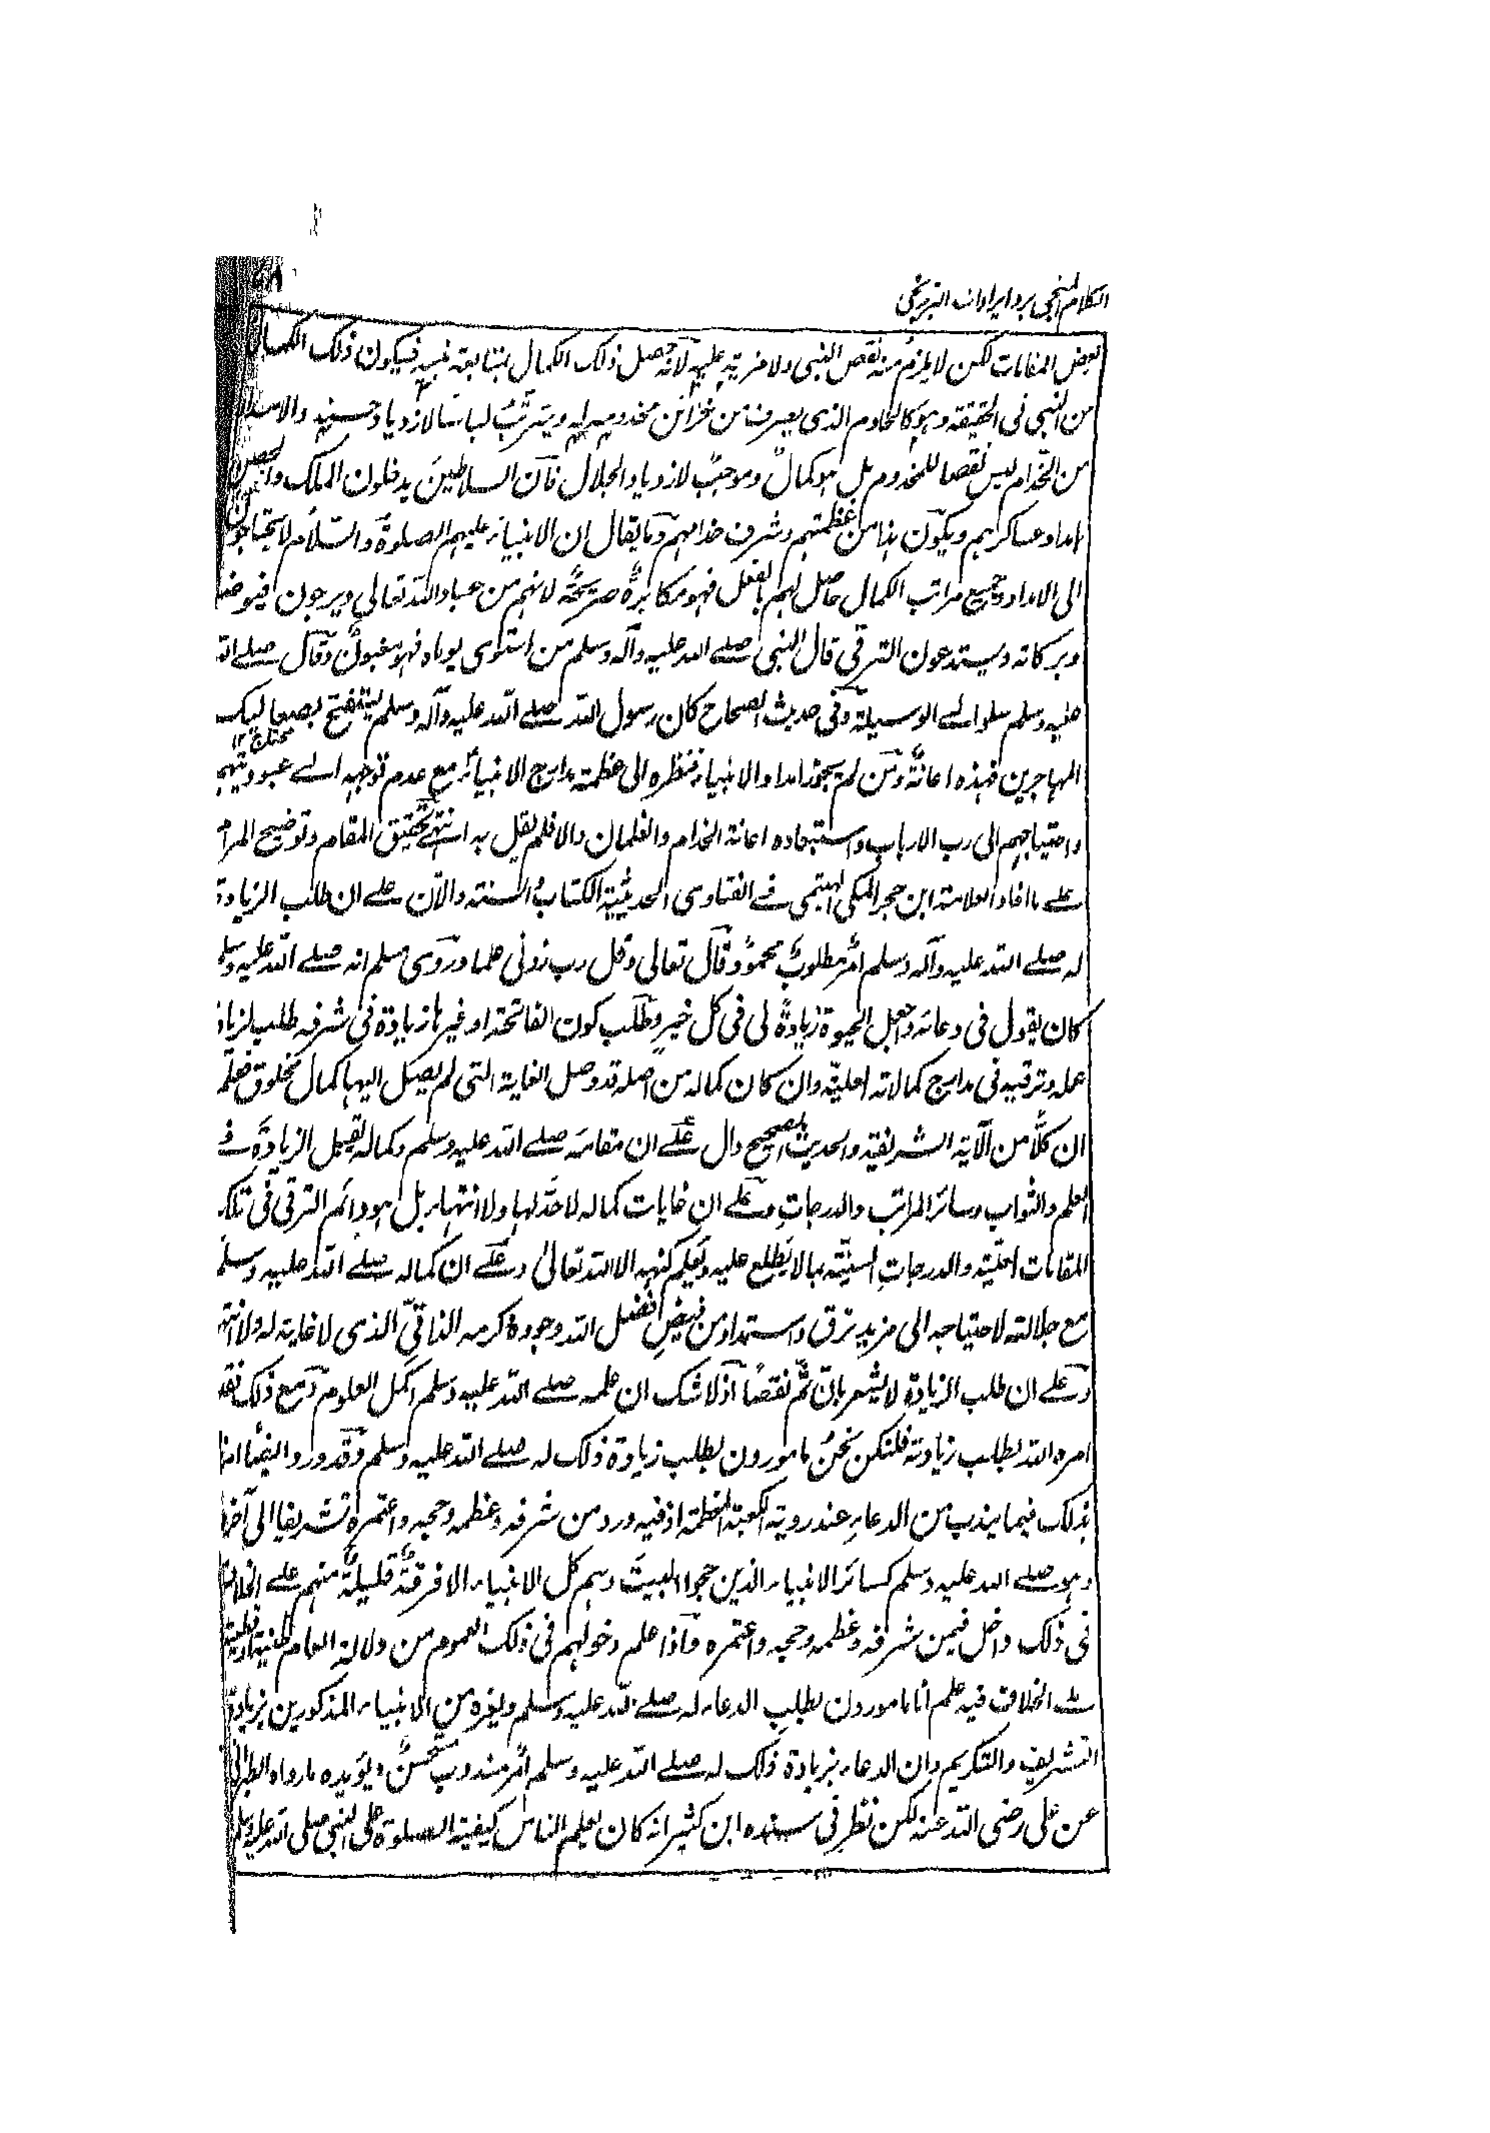 الكلام المنجي برد ايرادات البرزنجي
بعض المقامات لكن لا يلزم منه نقص النبي ولا مزيته عليه لانه حصل ذلك الكمال بمتابعة نبيه فيكون ذلك الكمال
من النبي في الحقيقة وهو كالخادم الذي يصرف من خزائن مخدومه اليه ويترتب لباسا لازدياد حسنه والامداد
من الخدام ليس نقصا للمخدوم بل هو كمال وموجب لازدياد الجلال فان السلاطين يدخلون الملك والحصن
امداد عساكرهم ويكون هذا من عظمتهم وشرف خدامهم وما يقال ان الانبياء عليهم الصلوة والسلام لا يحتاجون
الى الامداد وجميع مراتب الكمال حاصل لهم بالفعل فهو مكابرة صريحة لانهم من عباد الله تعالى ويرجون فيوضا
وبركاته ويستدعون الترقي قال النبي صلے الله عليه وآله وسلم من استوى يوماه فهو مغبون وقال صلے الله
عليه وسلم سلوا لے الوسيلة وفي حديث الصحاح كان رسول الله صلے الله عليه وآله وسلم يستفتح بصعاليك
المهاجرين فهذه اعانة ومن لم يجوز امداد الانبياء فنظره الى عظمة مدارج الانبياء مع عدم توجهه الے عبوديتهم
محتاج ١٢
واحتياجهم الى رب الارباب واستبعاده اعانة الخدام والغلمان والا فلم يقل به انتهے تحقيق المقام وتوضيح المرام
علے ما افاد العلامة ابن حجر المكي الهيتمي فے الفتاوى الحديثية الكتاب والسنة دالان علے ان طلب الزيادة
له صلے الله عليه وآله وسلم امر مطلوب محمود قال تعالى وقل رب زدني علما وروى مسلم انه صلے الله عليه وسلم
كان يقول في دعائه واجعل الحيوة زيادة لى في كل خير وطلب كون الفاتحة او غيرها زيادة في شرفه طلب لزيادة
علمه وترقيه في مدارج كمالاته العلية وان كان كماله من اصله قد وصل الغاية التي لم يصل اليها كمال مخلوق فعلم
ان كلا من الآية الشريفة والحديث الصحيح دال علے ان مقامه صلے الله عليه وسلم وكماله يقبل الزيادة فے
العلم والثواب وسائر المراتب والدرجات وعلے ان غايات كماله لا حد لها ولا انتهاء بل هو دائم الترقي في تلك
المقامات العلية والدرجات السنية بما لا يطلع عليه ويعلم كنهه الا الله تعالى وعلے ان كماله صلے الله عليه وسلم
مع جلالته لاحتياجه الى مزيد ترق واستمداد من فيض فضل الله وجوده وكرمه الذاتي الذي لا غاية له ولا انتهاء
وعلے ان طلب الزيادة لا يشعر بان ثم نقصا اذ لا شك ان علمه صلے الله عليه وسلم اكمل العلوم ومع ذلك فقد
امره الله بطلب زيادته فلنكن نحن مامورون بطلب زيادة ذلك له صلے الله عليه وسلم وقد ورد ايضا امرنا
بذلك فيما يندب من الدعاء عند رؤية الكعبة المعظمة اذ فيه ورد من شرفه وعظمه وحجه واعتمره تشريفا الى آخره
وهو صلے الله عليه وسلم كسائر الانبياء الذين حجوا البيت وهم كل الانبياء الا فرقة قليلة منهم علے الخلاف
في ذلك داخل فيمن شرفه وعظمه وحجه واعتمره واذا علم دخولهم في ذلك العموم من دلالة العام ظنية او قطعية
علے الخلاف فيه علم انا مامورون بطلب الدعاء له صلے الله عليه وسلم وغيره من الانبياء المذكورين بزيادة
التشريف والتكريم وان الدعاء بزيادة ذلك له صلے الله عليه وسلم امر مندوب مستحسن ويؤيده ما رواه الطبراني
عن علي رضى الله عنه لكن نظر في سنده ابن كثير انه كان يعلم الناس كيفية الصلوة على النبي صلى الله عليه وسلم